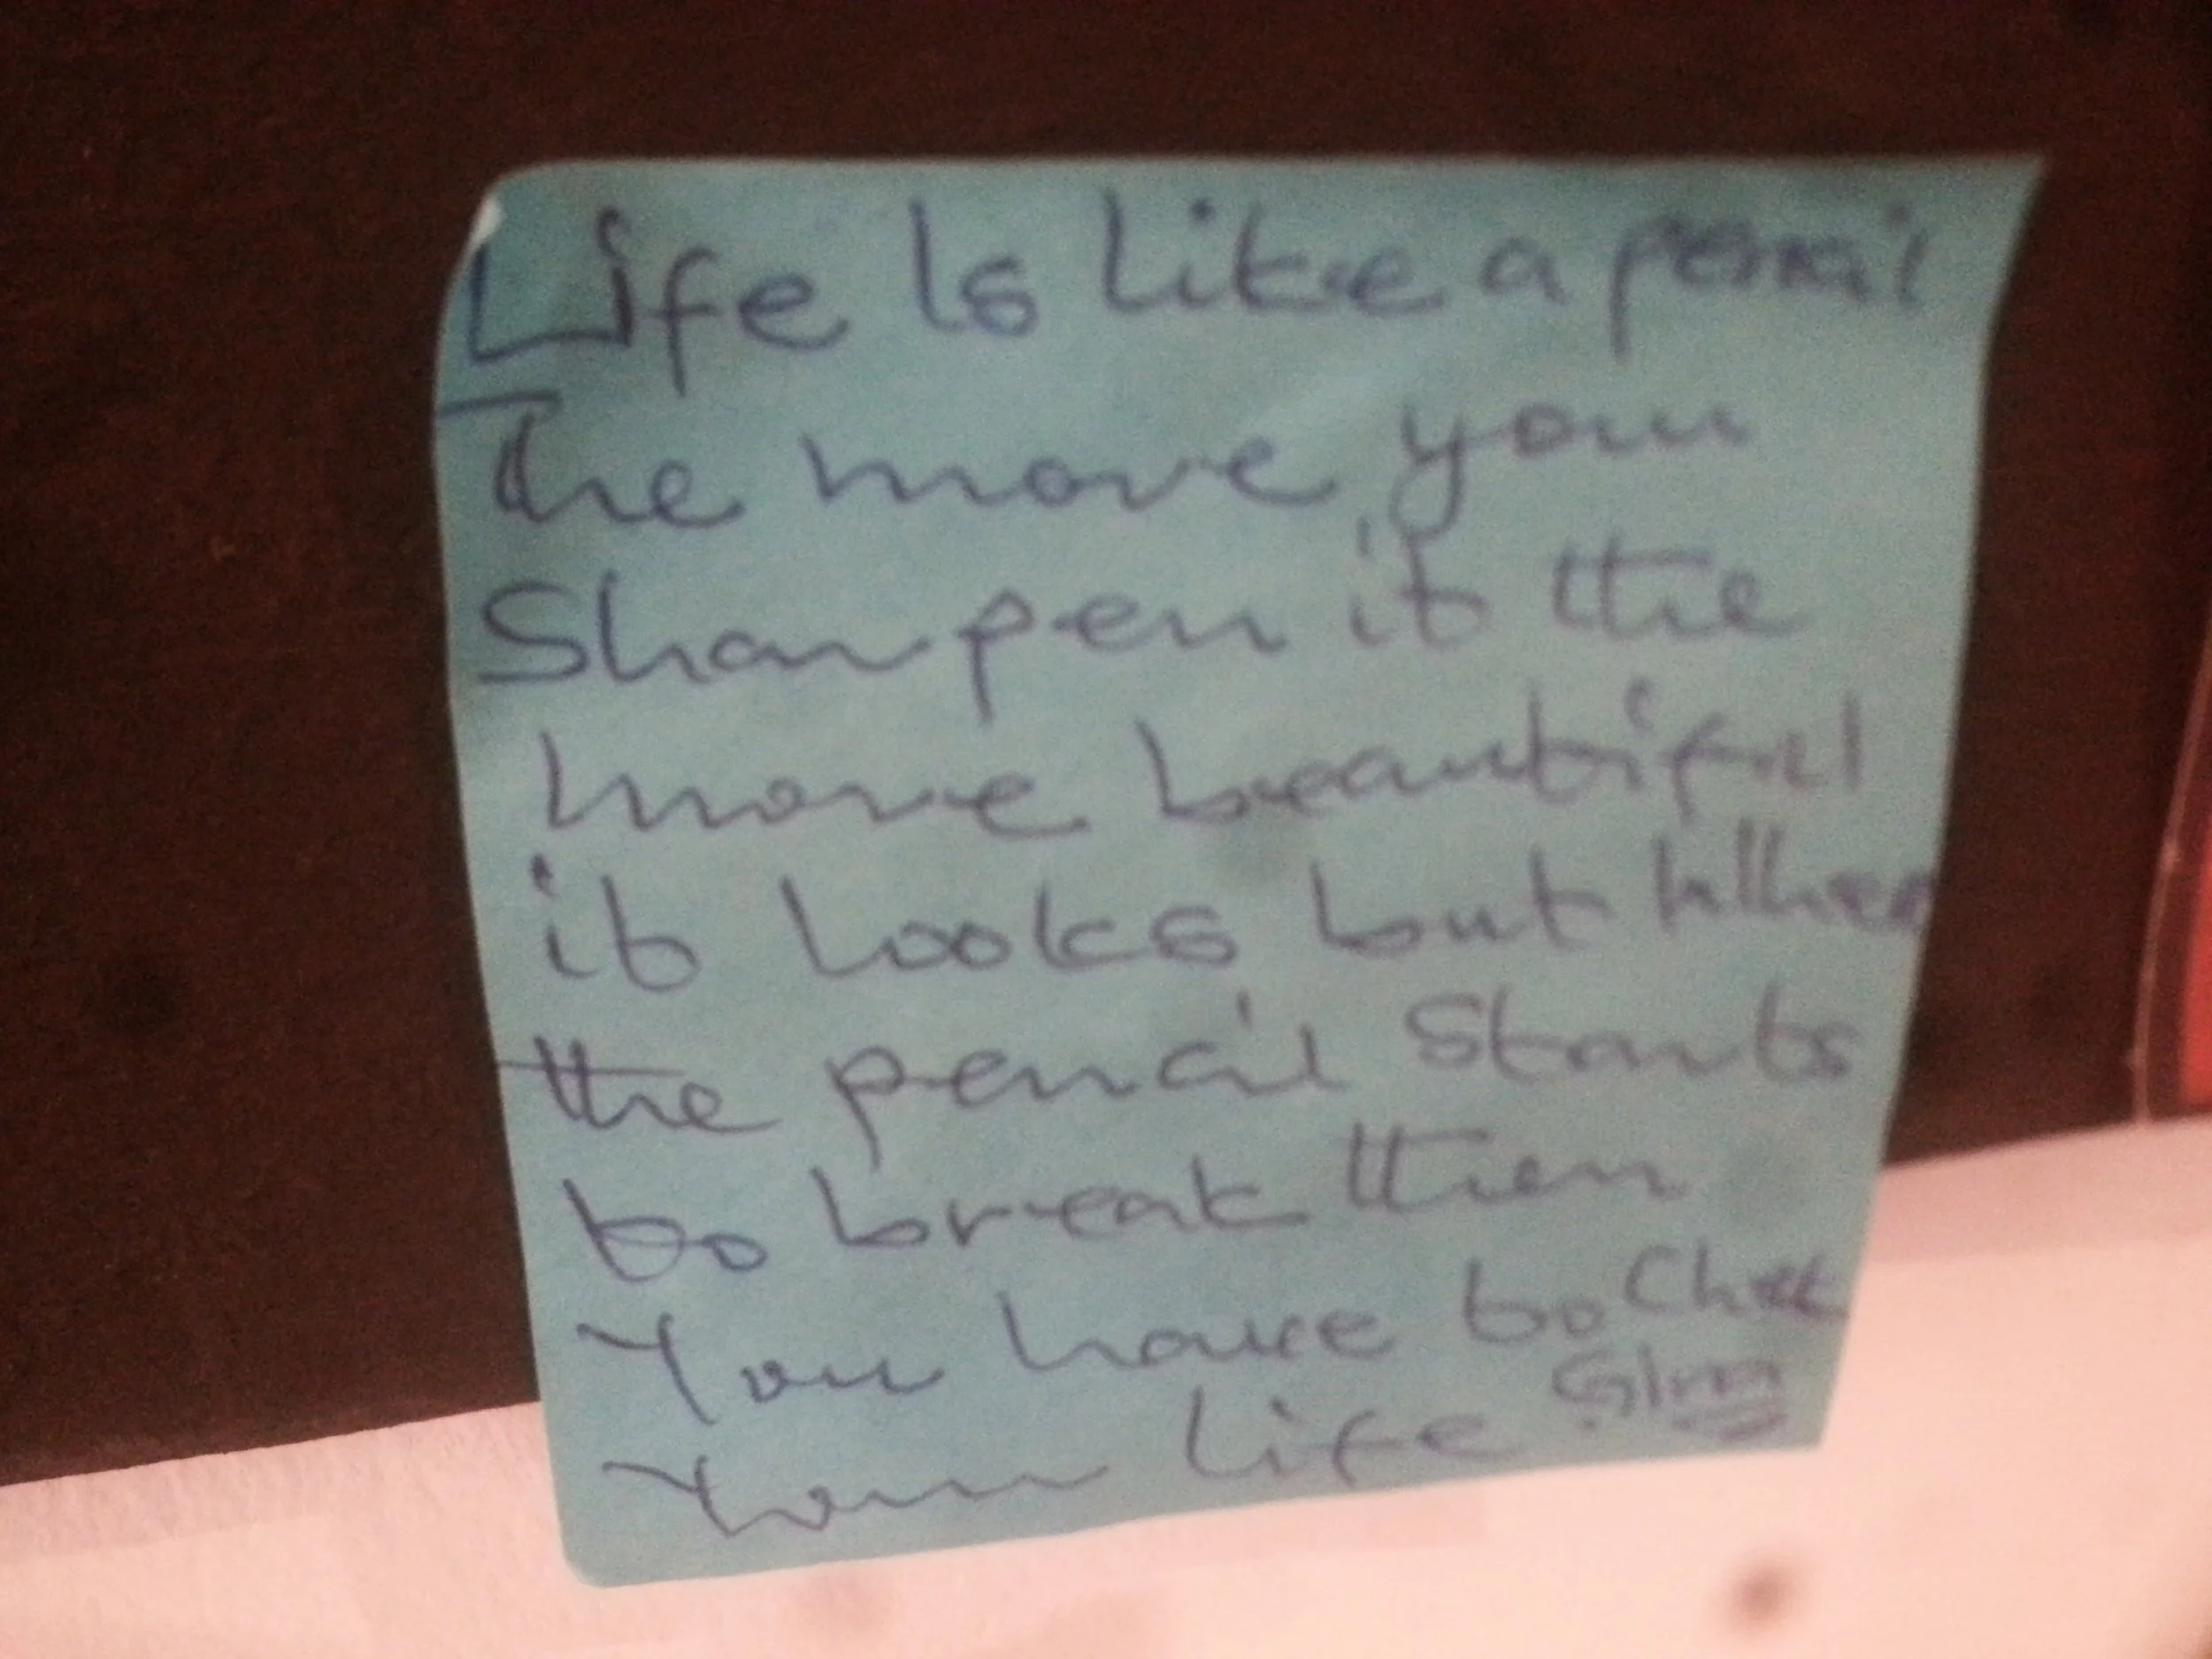 Life Is like a pencil
The more you
Sharpen it the
more beautiful
it looks but When
the pencil Starts
to break then
You have to
Your life.